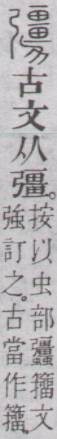 古文从彊。
按以虫部𧖑籒文
強訂之。古當作籒。